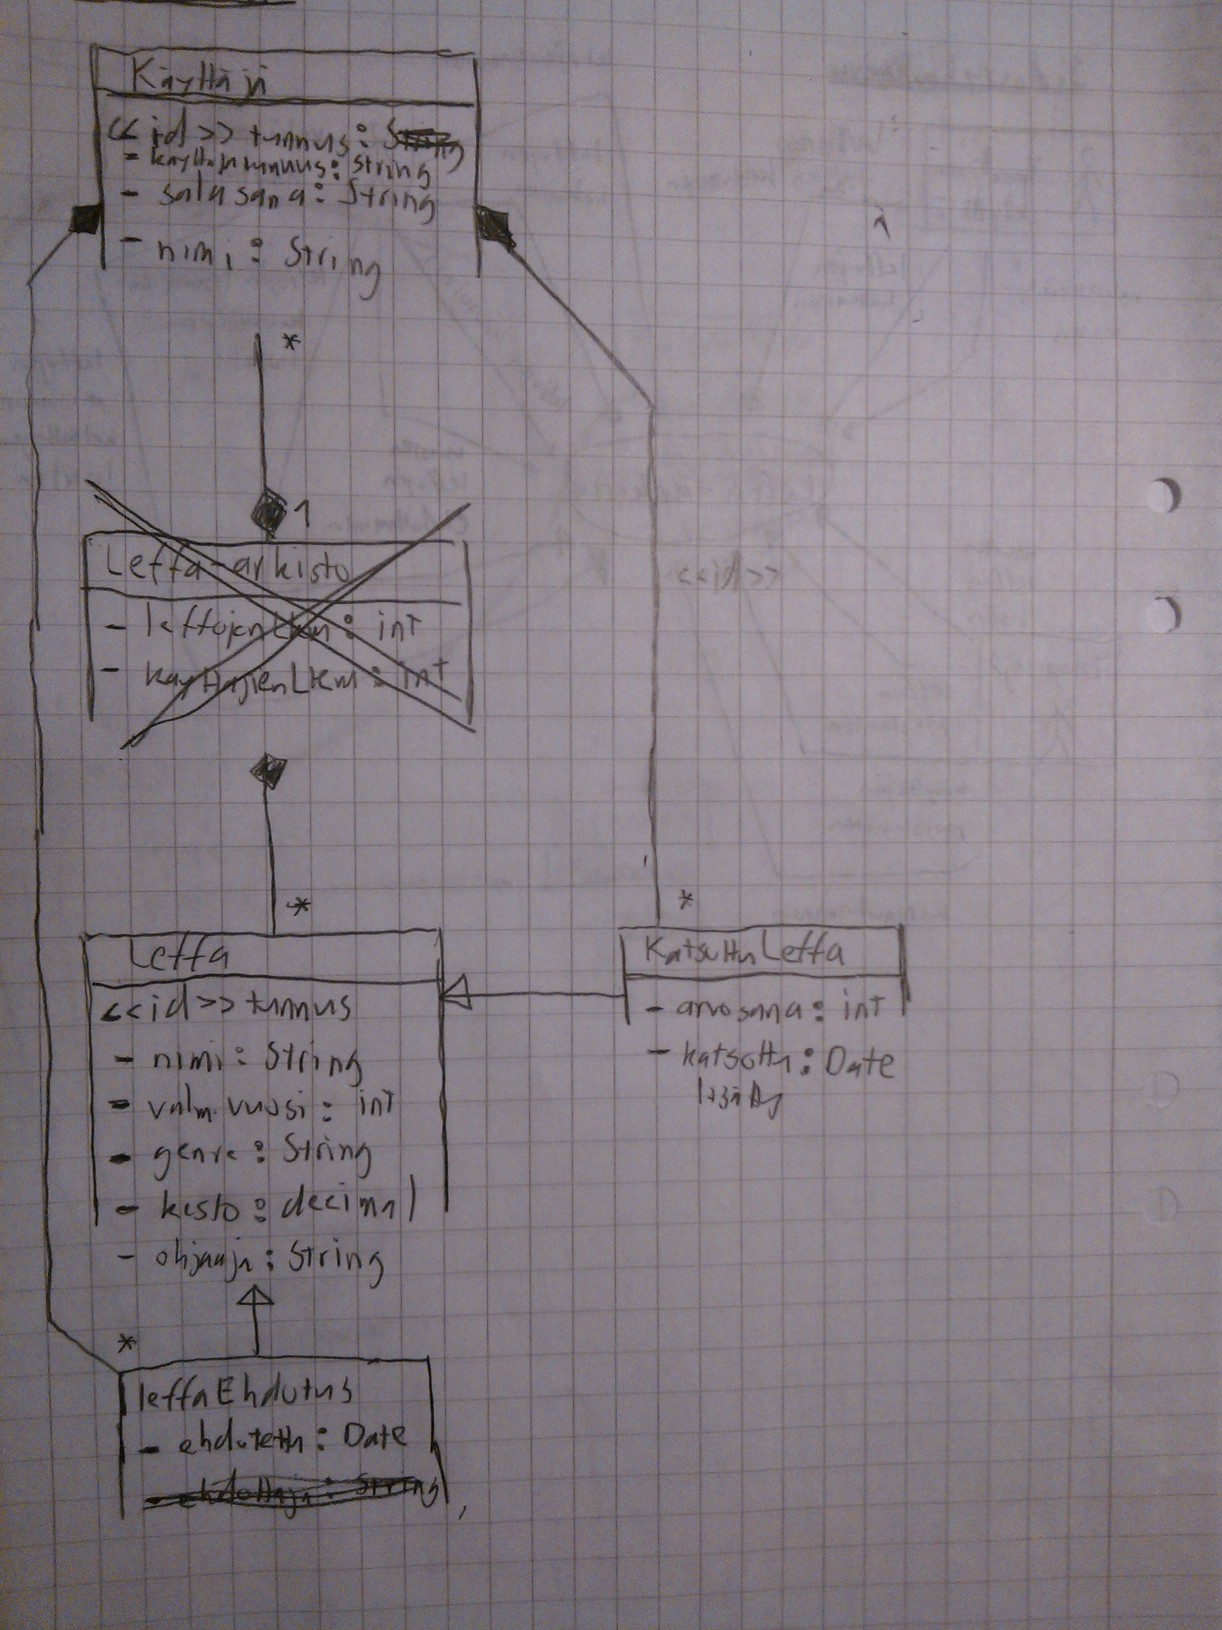 Käyttäjä
<<id>> tunnus: String
- käyttäjätunnus: String
- salasana: String
- nimi: String
*
1
Leffa-arkisto
- leffojenLkm: int
- käyttäjienLkm: int
<<id>>
*
*
Leffa
<<id>> tunnus
- nimi: String
- valm.vuosi: int
- genre: String
- kesto: decimal
- ohjaaja: String
KatsottuLeffa
- arvosana: int
- katsottu: Date
lisätty
*
leffaEhdotus
- ehdotettu: Date
- ehdottaja: String